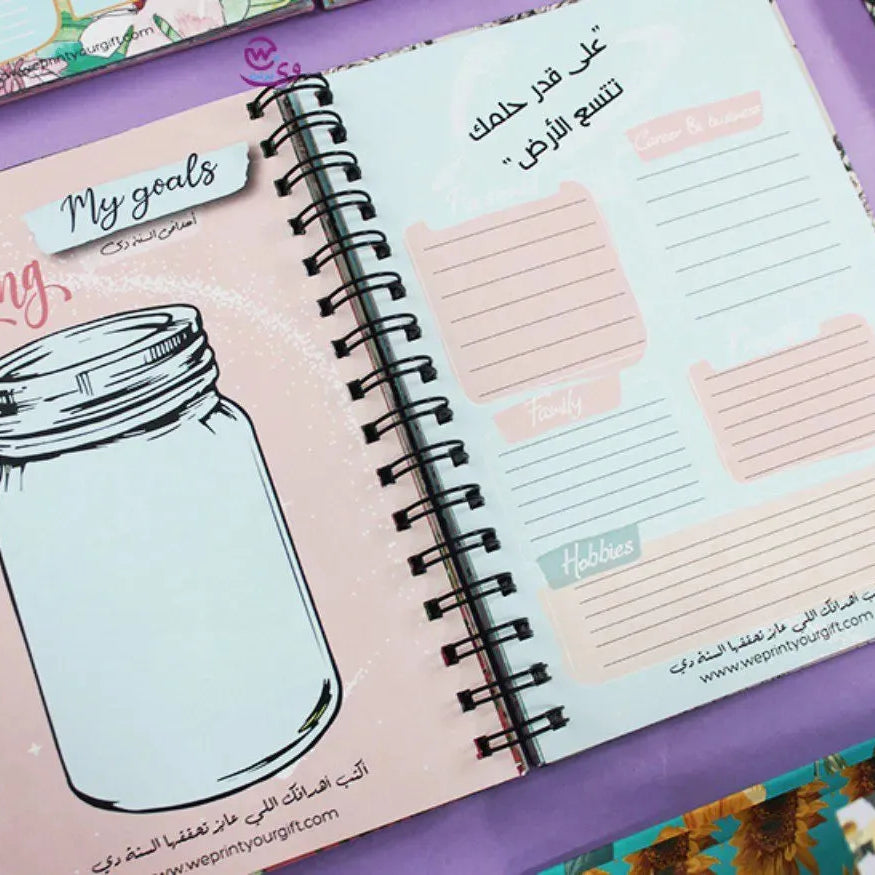 www.weprintyourgift.com
My goals
أهدافي السنة دي
ng
أكتب أهدافك اللي عايز تحققها السنة دي
www.weprintyourgift.com
"على قدر حلمك
تتسع الأرض"
Personal
Career & business
Family
Hobbies
أكتب أهدافك اللي عايز تحققها السنة دي
www.weprintyourgift.com